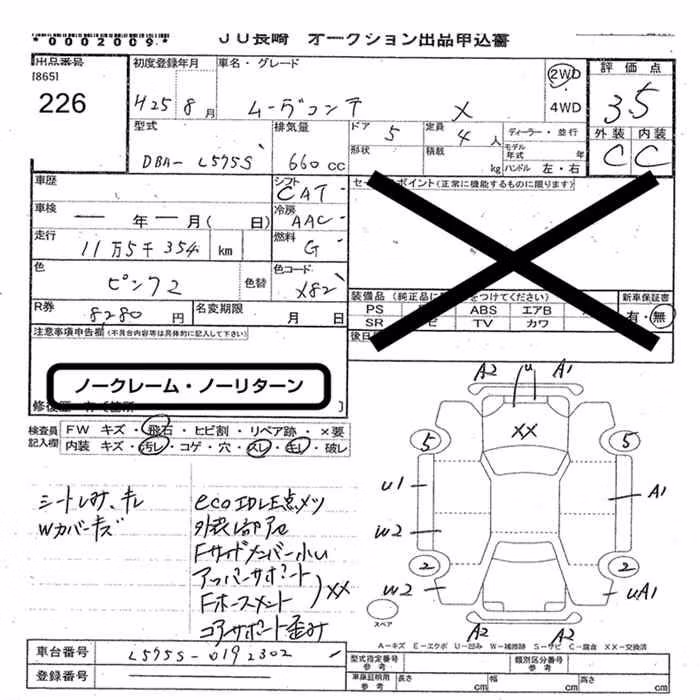 *0002009*
JU長崎 オークション出品申込書
出品番号
[865]
226
初度登録年月
H25 8月
車名・グレード
ムーヴコンテ X
2WD
4WD
評価点
3.5
外装 内装
C C
型式
DBA- L575S
排気量
660cc
ドア 5
定員 4人
形状
積載 kg
ディーラー・並行
モデル年式 年
ハンドル 左・右
車歴
シフト
CAT
車検
年 月( 日)
冷房
AAC
走行
11万5千354 km
燃料
G
色
ピンク2
色替
色コード
X82
R券
8280円
名変期限
月 日
セールスポイント(正常に機能するものに限ります)
装備品(純正品に をつけてください)
新車保証書
有・無
PS ABS エアB
SR TV カワ
後日
注意事項申告欄(不具合内容等は具体的に記入して下さい)
ノークレーム・ノーリターン
修復歴 有(箇所 )
検査員記入欄
FW キズ・飛石・ヒビ割・リペア跡・×要
内装 キズ・汚レ・コゲ・穴・スレ・キレ・破レ
シートしみ、キレ
Wカバーキズ
eco IDLE点メツ
Fサイドメンバー小い
アッパーサポート
Fホースメント
XX
コアサポート歪み
A2 u A1
XX
5 5
u1 A1
w2
2 2
w2 uA1
A2 A2
スペア
A-キズ E-エクボ U-凹み W-補修跡 S-サビ C-腐食 XX-交換済
車台番号
L575S-0192302
登録番号
型式指定番号 参考
類別区分番号 参考
車庫証明用 参考
長さ cm
幅 cm
高さ cm